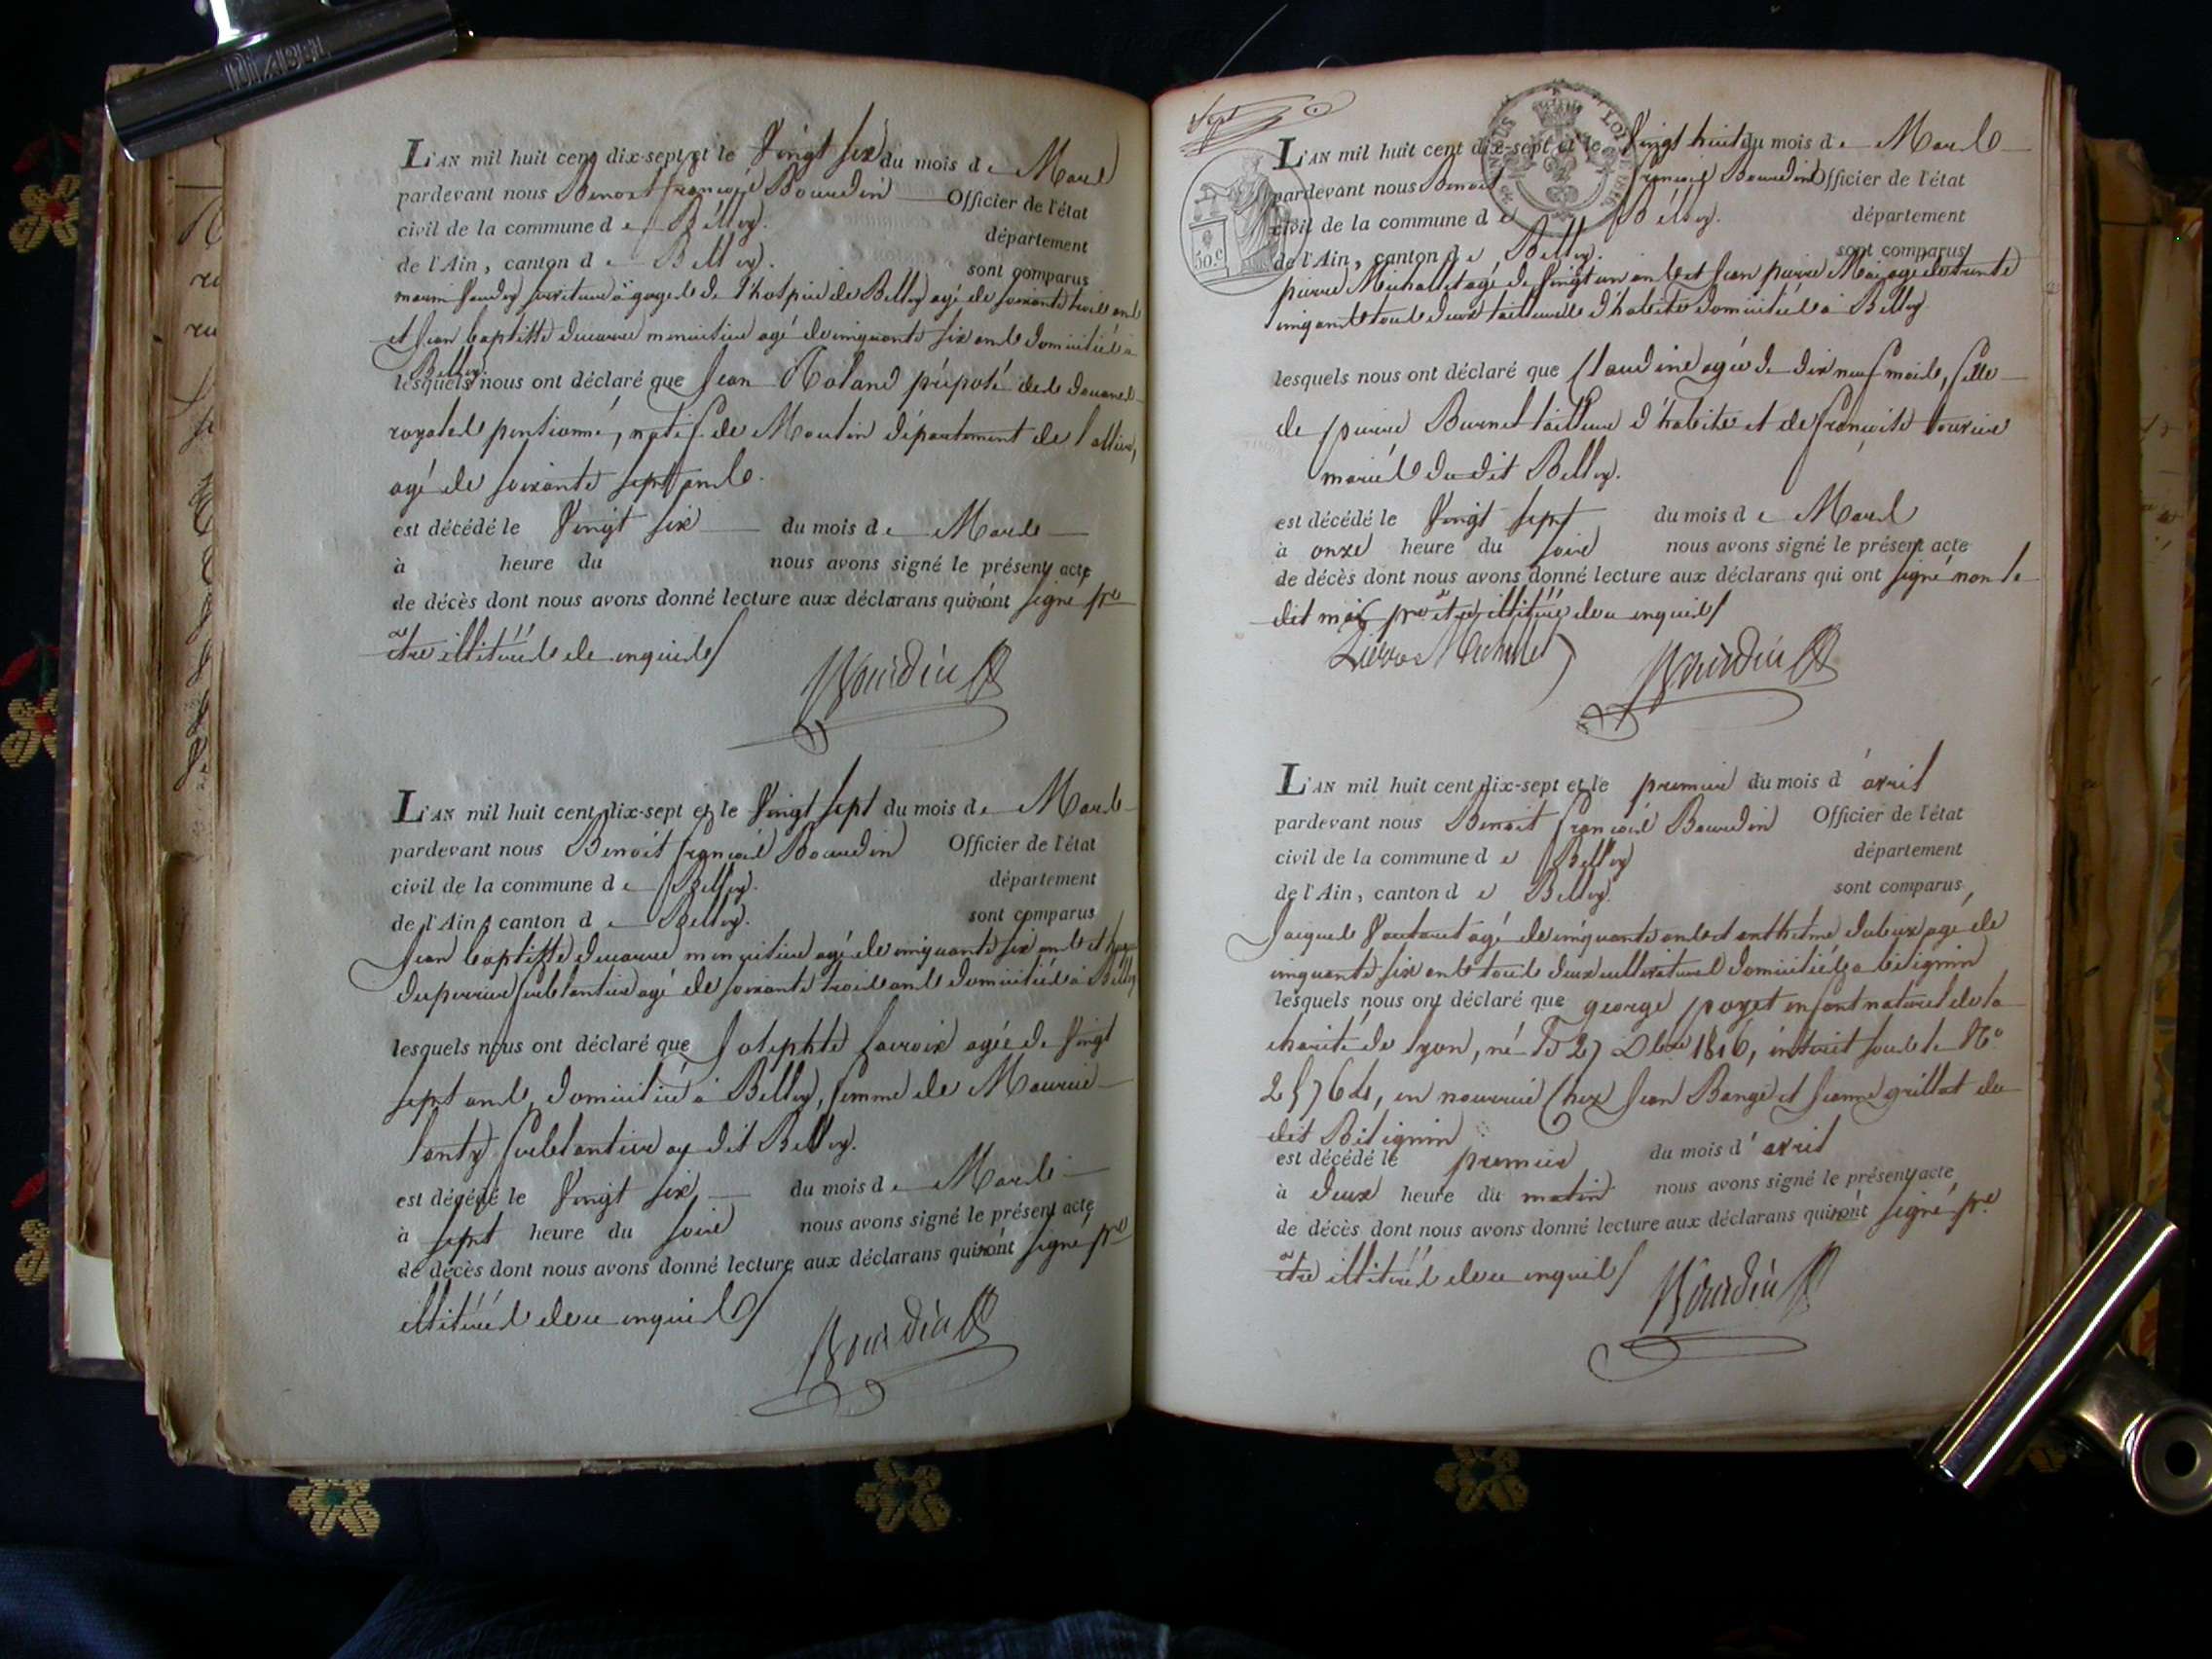 L'AN mil huit cent dix-sept et le Vingt six du mois de Mars
pardevant nous Benoit françois Bourdin Officier de l'état
civil de la commune de Belley département
de l'Ain, canton de Belley. sont comparus
agé de soixante trois ans
et Jean baptiste ducarre menuisier agé de cinquante six ans domiciliés à
Belley.
lesquels nous ont déclaré que Jean Roland préposé des douanes
royales pensionné, natif de Moulin département de l'allier,
agé de soixante sept ans.
est décédé le Vingt six du mois de Mars
à heure du nous avons signé le présent acte
de décès dont nous avons donné lecture aux déclarans qui n'ont signé pr
être illitérés de ce enquis/
Bourdin
L'AN mil huit cent dix-sept et le Vingt sept du mois de Mars
pardevant nous Benoit françois Bourdin Officier de l'état
civil de la commune de Belley. département
de l'Ain, canton de Belley. sont comparus
Jean baptiste ducarre menuisier agé de cinquante six ans et
agé de soixante trois ans domiciliés à Belley
lesquels nous ont déclaré que Josephte Lacroix agée de Vingt
sept ans, domiciliée à Belley, femme de Mauricie
Lantz au dit Belley.
est décédé le Vingt six du mois de Mars
à sept heure du soire nous avons signé le présent acte
de décès dont nous avons donné lecture aux déclarans qui n'ont signé pr
illitérés de ce enquis/
Bourdin
Sept
50.c
L'AN mil huit cent dix-sept et le Vingt huit du mois de Mars
pardevant nous Benoit françois Bourdin Officier de l'état
civil de la commune de Belley. département
de l'Ain, canton de Belley. sont comparus
pierre Michallet agé de Vingt un ans et Jean pierre Moi agé de trente
cinq ans tous deux tailleurs d'habits domiciliés à Belley.
lesquels nous ont déclaré que Claudine agée de dix neuf mois, fille
de pierre Burnet tailleur d'habits et de françoise
mariés du dit Belley.
est décédé le Vingt sept du mois de Mars
à onze heure du soire nous avons signé le présent acte
de décès dont nous avons donné lecture aux déclarans qui ont signé non le
dit moi pr être illitéré de ce enquis/
Pierre Michallet
Bourdin
L'AN mil huit cent dix-sept et le premier du mois d'avril
pardevant nous Benoit françois Bourdin Officier de l'état
civil de la commune de Belley département
de l'Ain, canton de Belley. sont comparus,
Jacques agé de cinquante ans et anthelme agé de
cinquante six ans tous deux cultivateurs domiciliés à bitignin
lesquels nous ont déclaré que george poyet enfant naturel de la
charité de lyon, né le 27 Xbre 1816, inscrit sous le No
en nourrice chez Jean Bange et Jeanne grillat du
dit Bitignin
est décédé le premier du mois d'avril
à deux heure du matin nous avons signé le présent acte
de décès dont nous avons donné lecture aux déclarans qui n'ont signé pr
être illitérés de ce enquis/
Bourdin